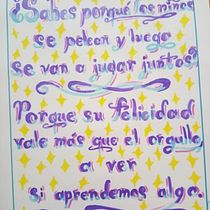 ¿Sabes porque los niños
se pelean y luego
se van a jugar juntos?
Porque su felicidad
vale más que el orgullo
a ver
si aprendemos algo.